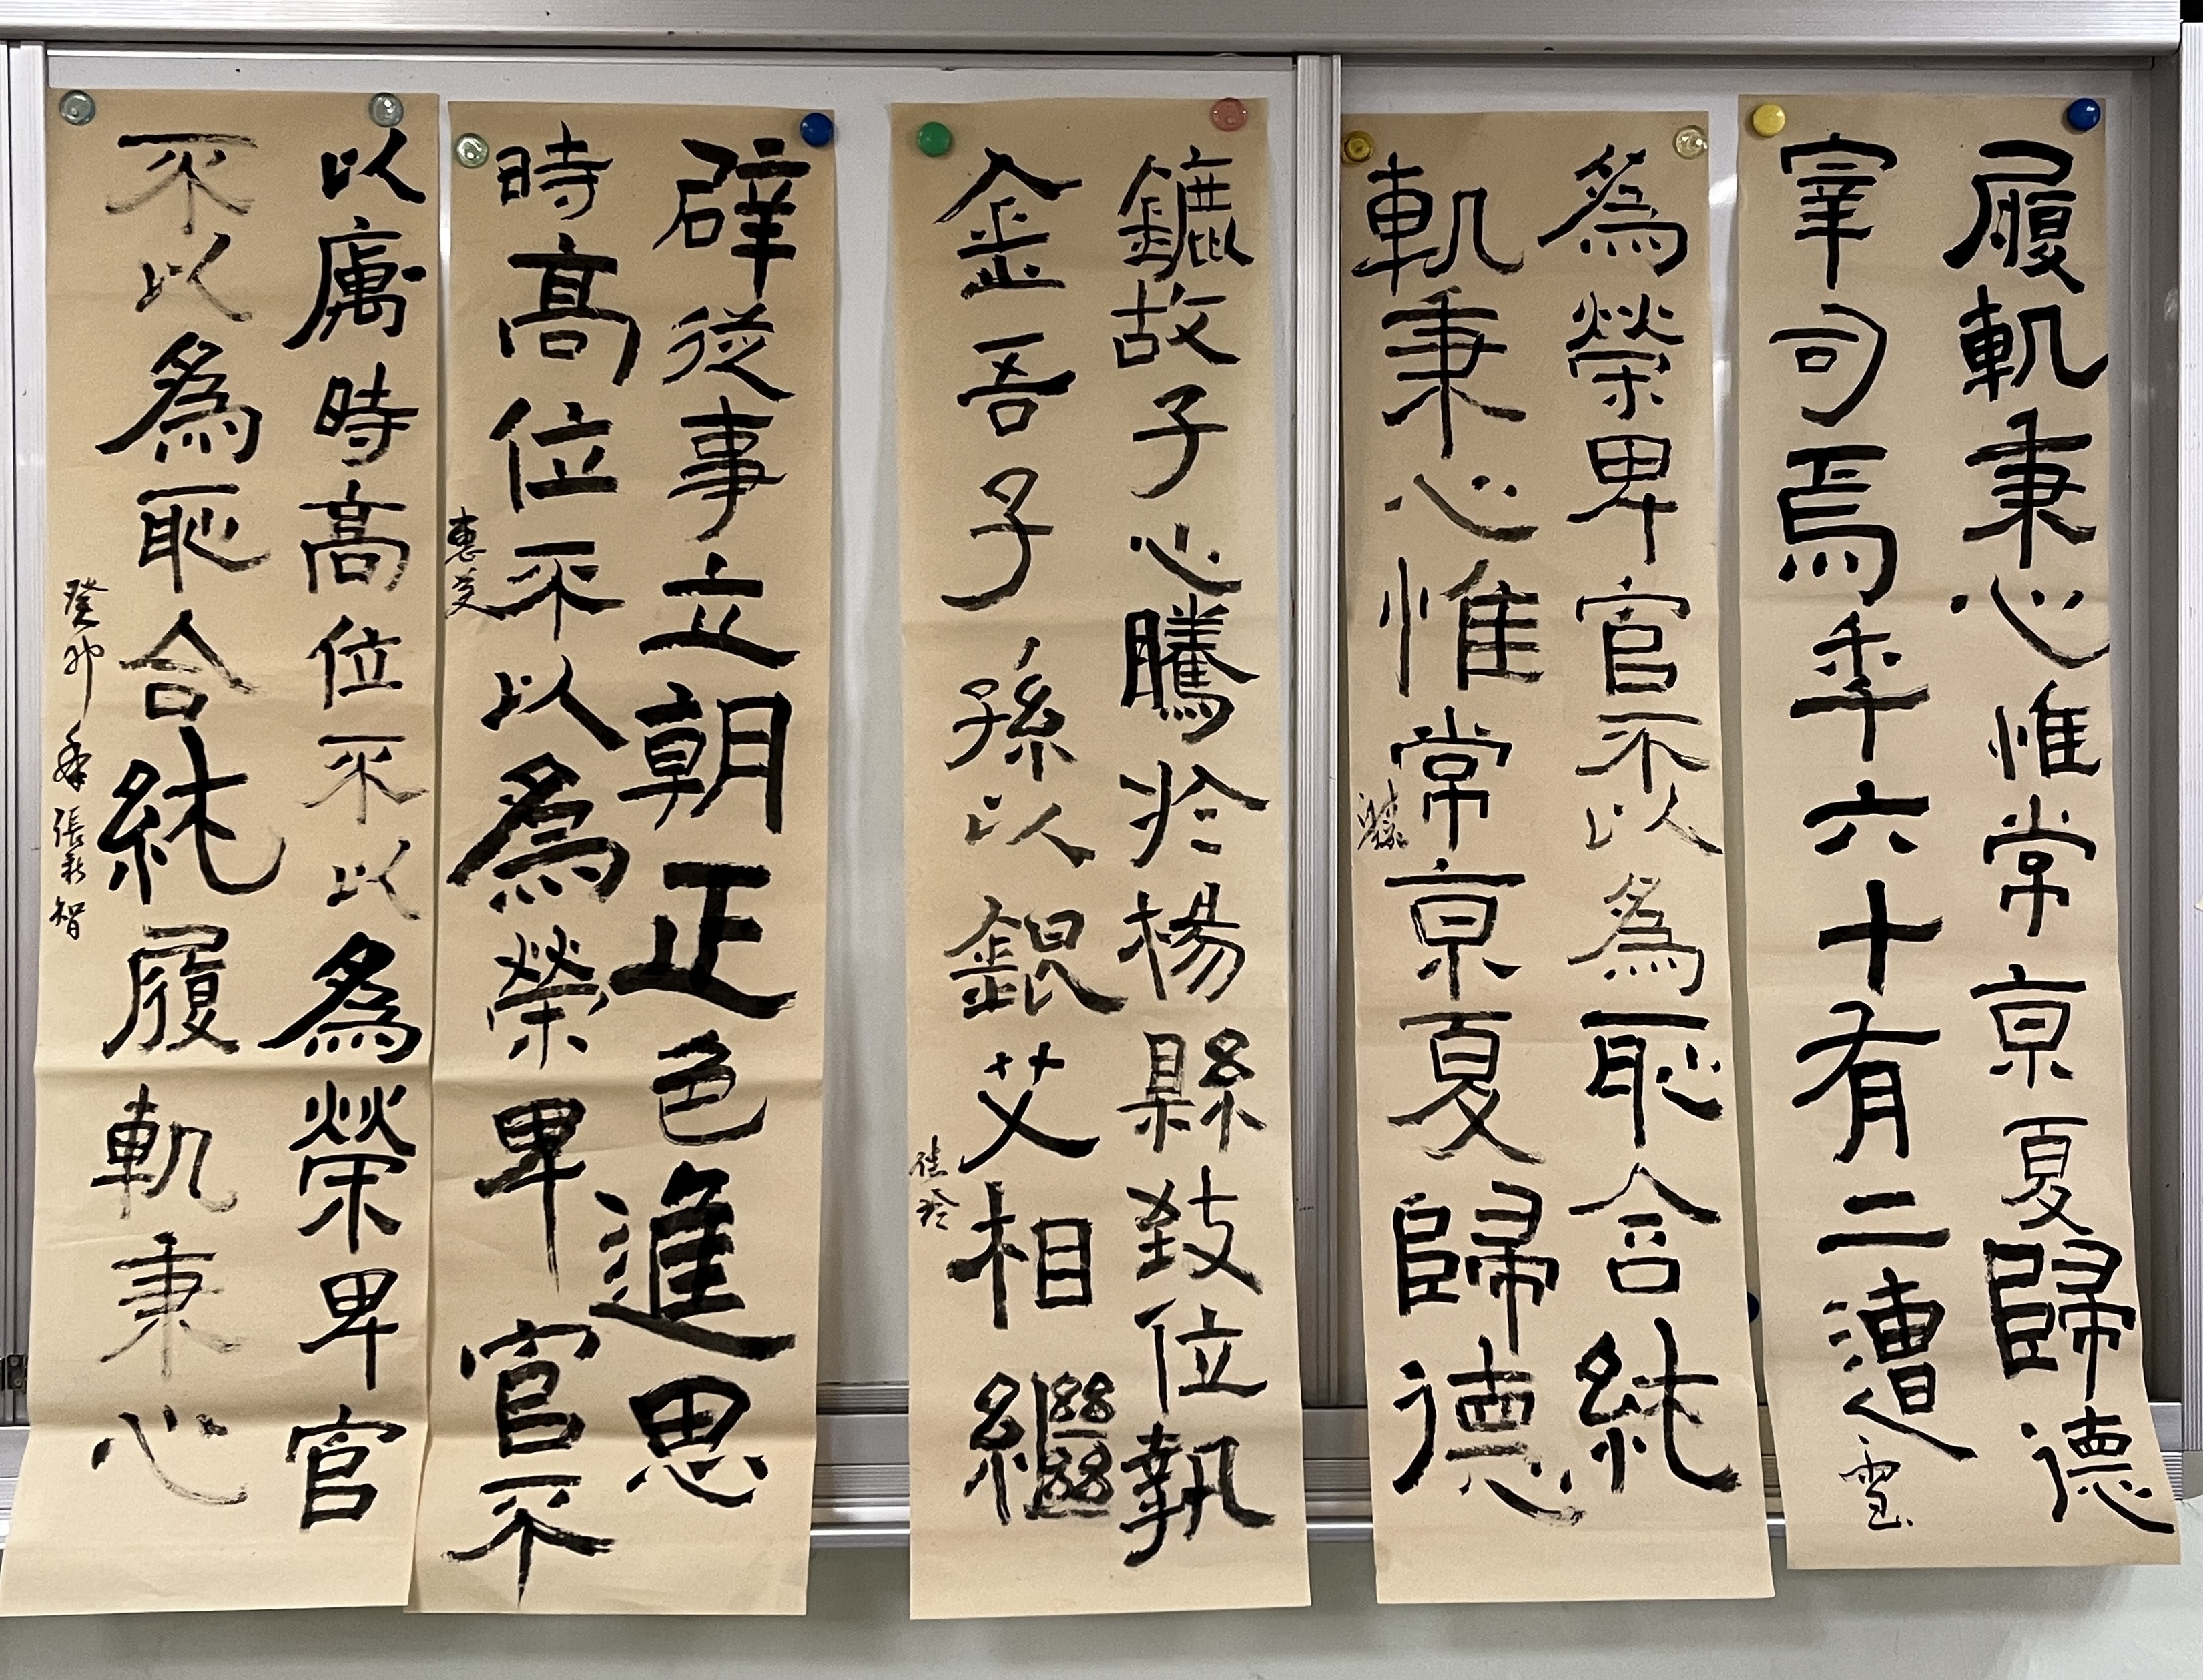 履軌秉心惟常京夏歸德
宰司焉年六十有二遭
雪
爲榮卑官不以爲恥含純
軌秉心惟常京夏歸德
鑣故子心騰於楊縣致位執
金吾子孫以銀艾相繼
佳玲
辟從事立朝正色進思
時高位不以爲榮卑官不
惠
以厲時高位不以爲榮卑官
不以爲恥含純履軌秉心
癸卯年張智